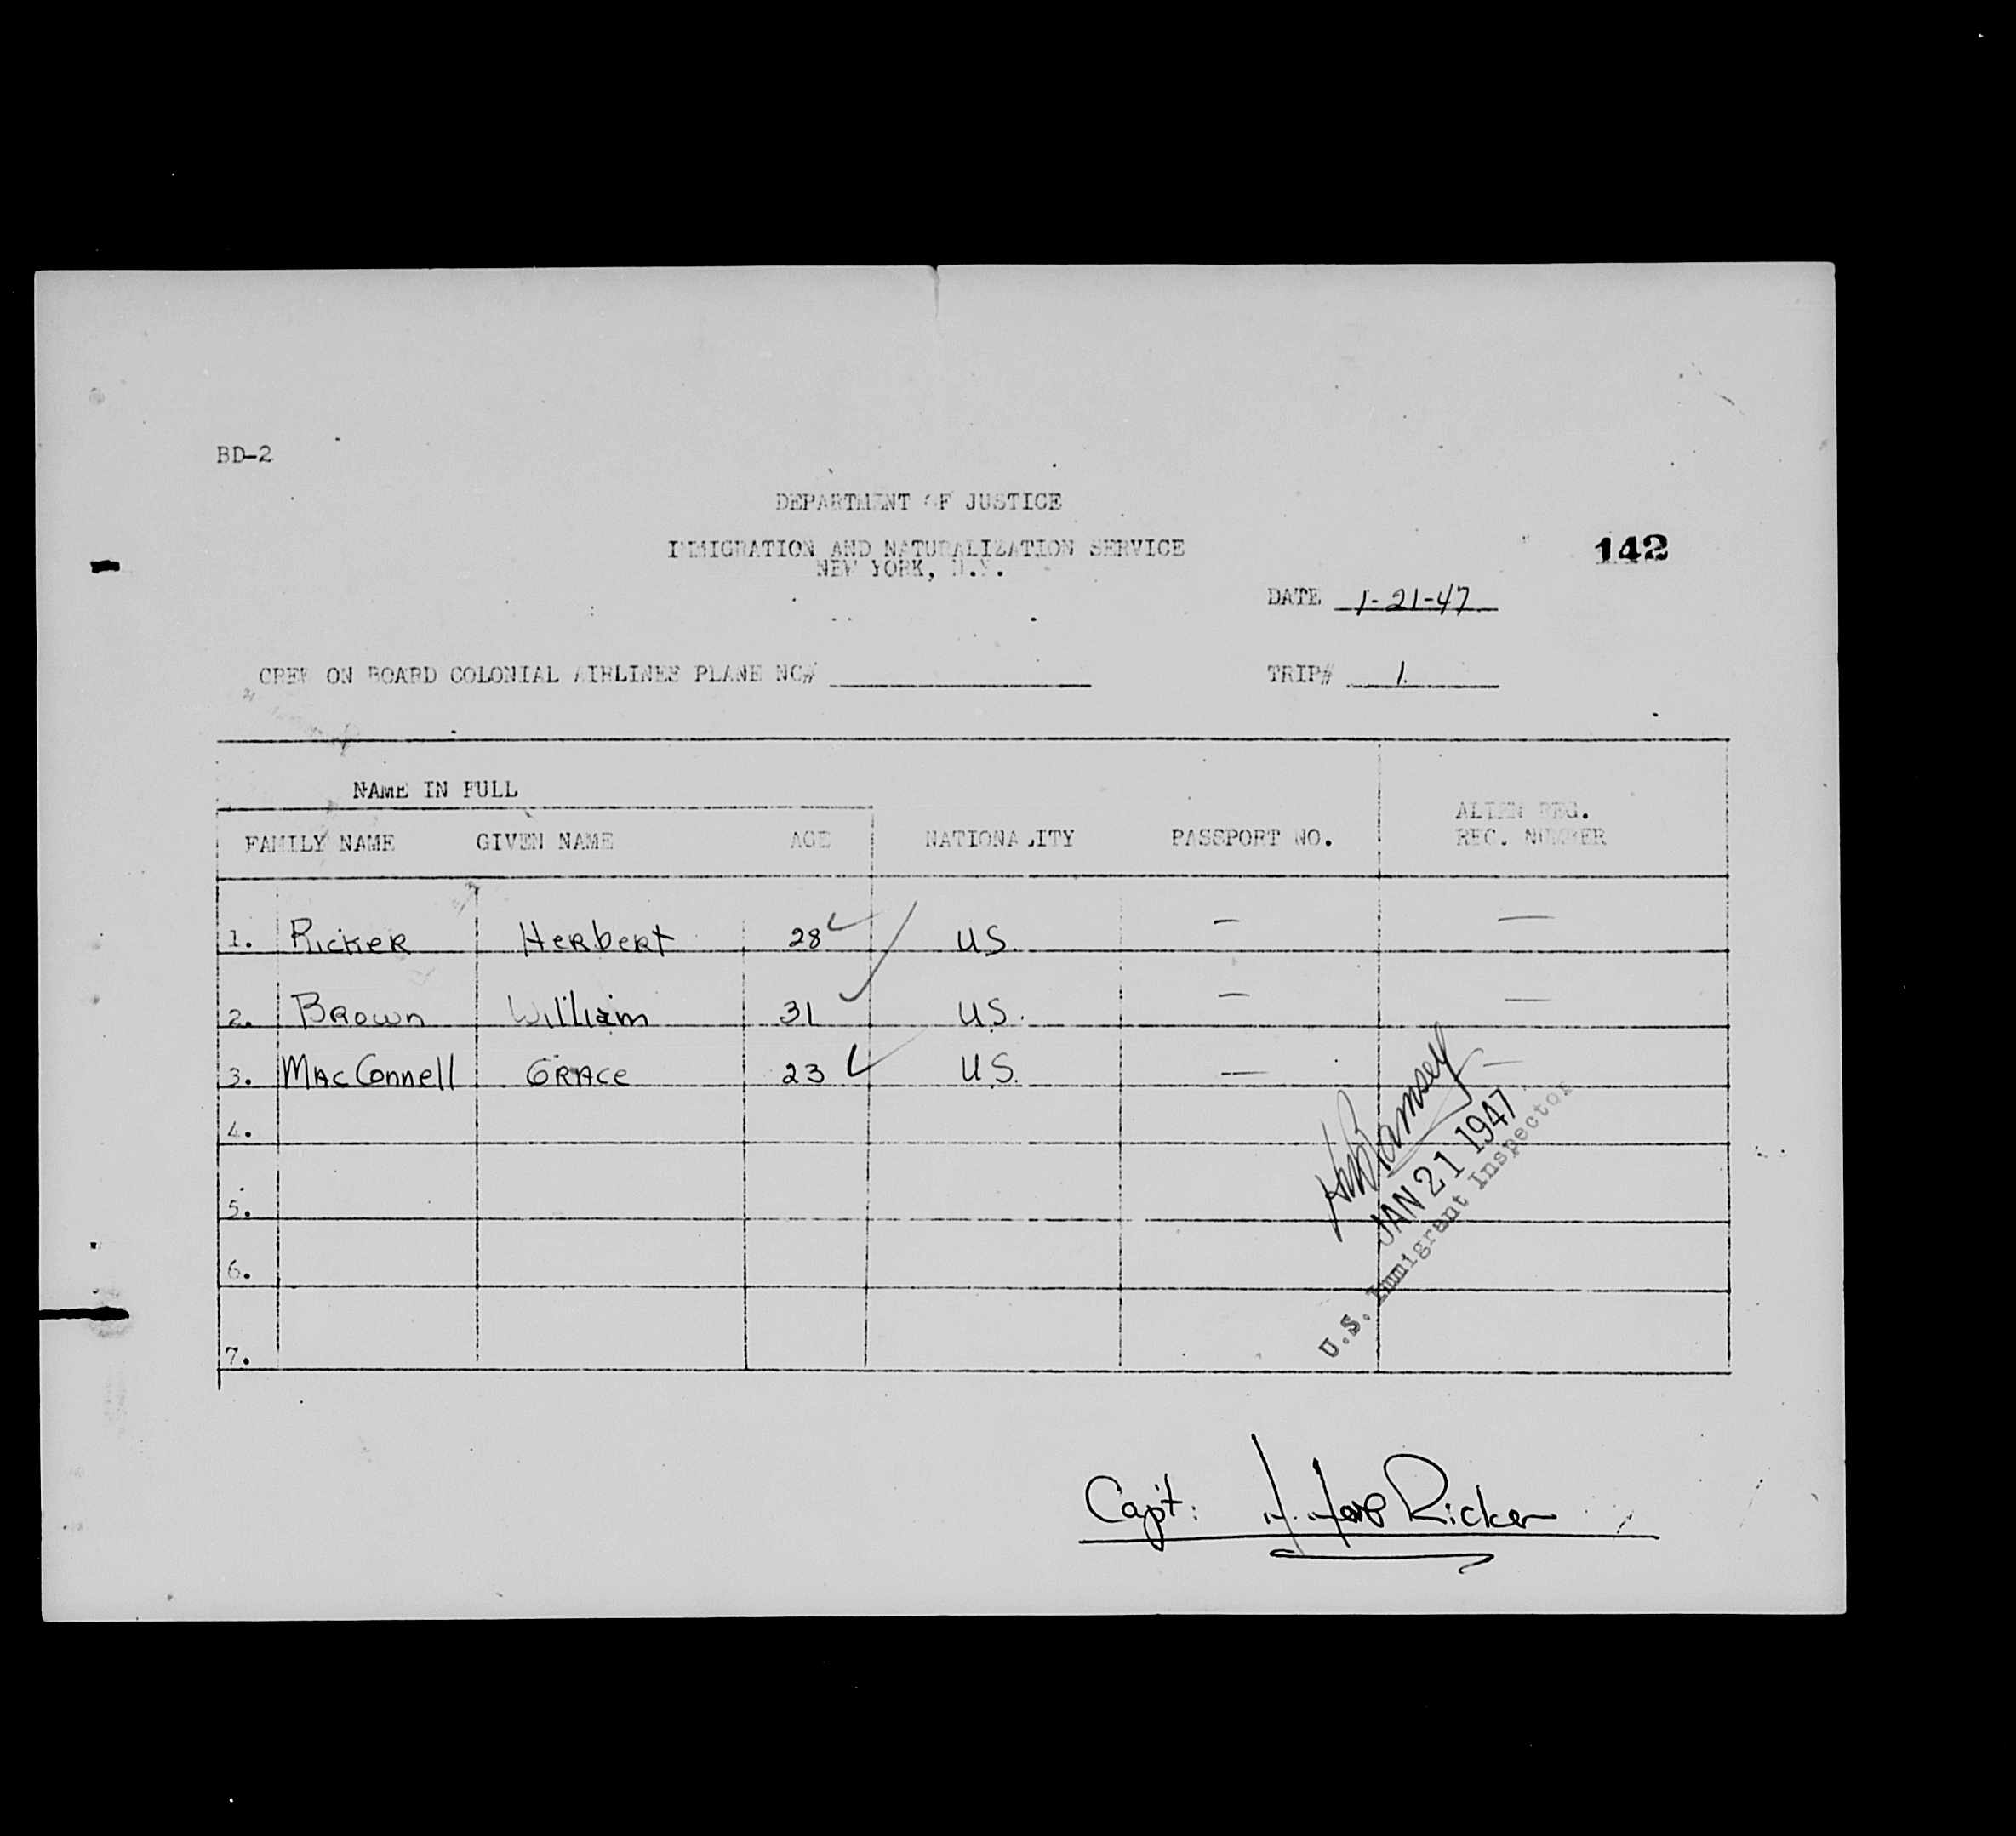 BD-2
DEPARTMENT OF JUSTICE
IMMIGRATION AND NATURALIZATION SERVICE
142
NEW YORK, N.Y.
DATE 1-21-47
CREW ON BOARD COLONIAL AIRLINES PLANE NO#
TRIP# 1
NAME IN FULL
ALIEN REG.
FAMILY NAME GIVEN NAME AGE NATIONALITY PASSPORT NO. REC. NUMBER
1. Ricker Herbert 28 U.S. — —
2. Brown William 31 U.S. — —
3. MacConnell Grace 23 U.S. — —
4.
5.
6.
7.
Ramsey
JAN 21 1947
U.S. Immigrant Inspector
Capt: H. Herb Ricker